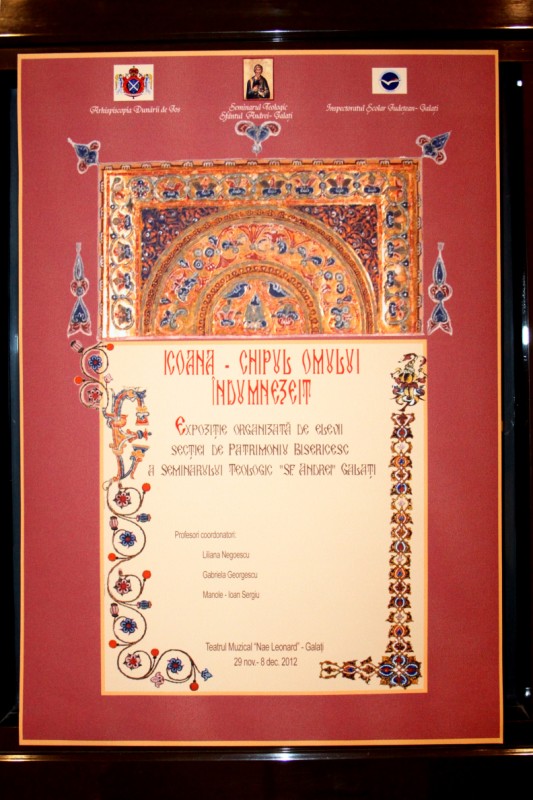 Arhiepiscopia Dunării de Jos
Seminarul Teologic
Sfântul Andrei - Galați
Inspectoratul Școlar Județean - Galați
ICOANA - CHIPUL OMULUI
ÎNDUMNEZEIT
EXPOZIȚIE ORGANIZATĂ DE ELEVII
SECȚIEI DE PATRIMONIU BISERICESC
A SEMINARULUI TEOLOGIC "SF ANDREI" GALAȚI
Profesori coordonatori:
Liliana Negoescu
Gabriela Georgescu
Manole - Ioan Sergiu
Teatrul Muzical "Nae Leonard" - Galați
29 nov.- 8 dec. 2012